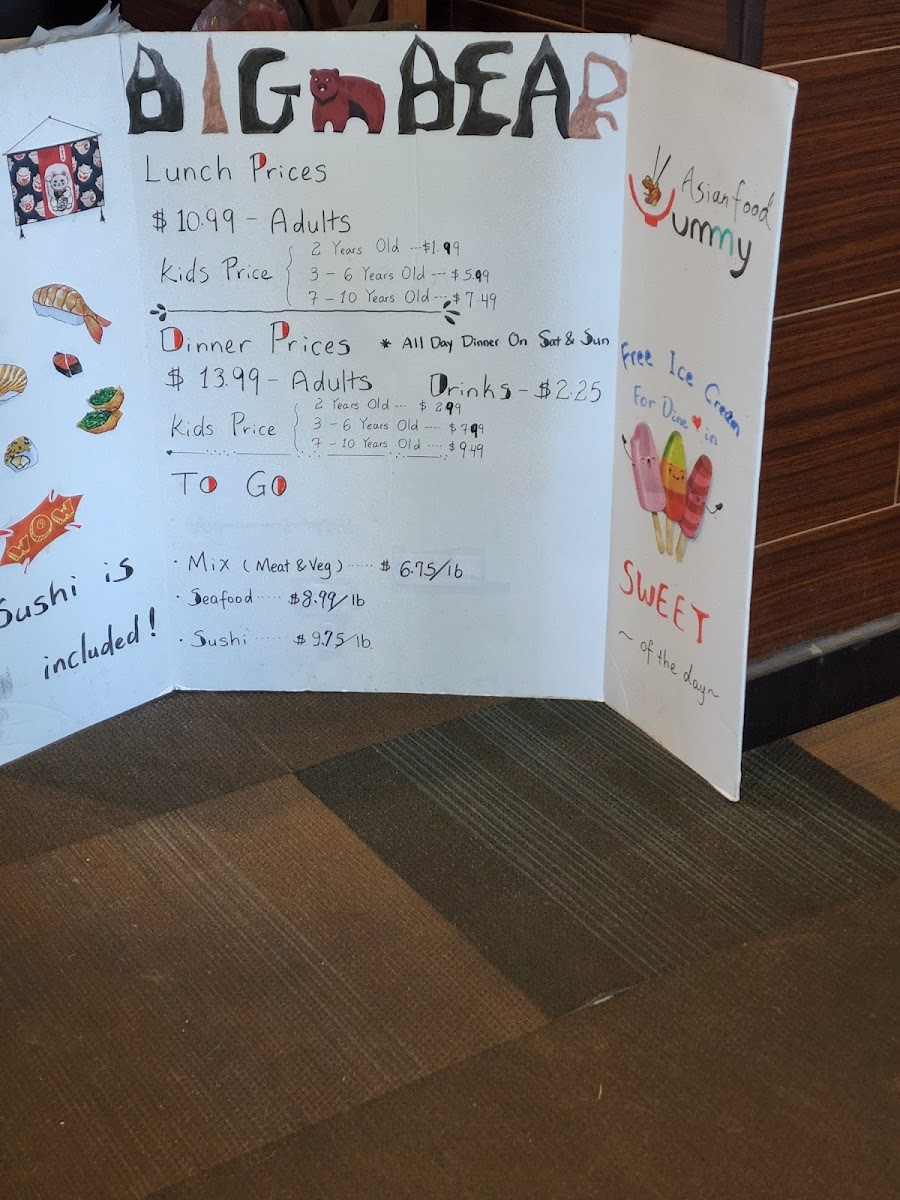 BIG BEAR
Lunch Prices
$10.99 - Adults
Kids Price
2 Years Old ---$1.99
3 - 6 Years Old --- $5.99
7 - 10 Years Old --- $7.49
Dinner Prices * All Day Dinner On Sat & Sun
$13.99 - Adults
Drinks - $2.25
Kids Price
2 Years Old --- $2.99
3 - 6 Years Old ---- $7.99
7 - 10 Years Old ---- $9.49
TO GO
· Mix (Meat & Veg) ····· $6.75/lb
· Seafood ····· $8.99/lb
· Sushi ······ $9.75/lb.
WOW
Sushi is
included!
Asian food
Yummy
Free Ice Cream
For Dine ♥ in
SWEET
~ of the day ~